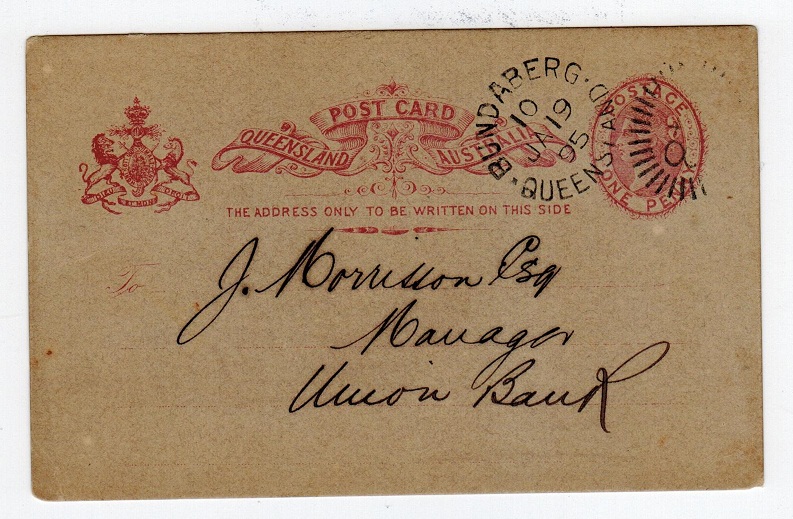 POST CARD
QUEENSLAND AUSTRALIA
THE ADDRESS ONLY TO BE WRITTEN ON THIS SIDE
BUNDABERG
10
JA 19
95
QUEENSLAND
POSTAGE
ONE PENNY
To J. Morrisson Esq
Manager
Union Bank